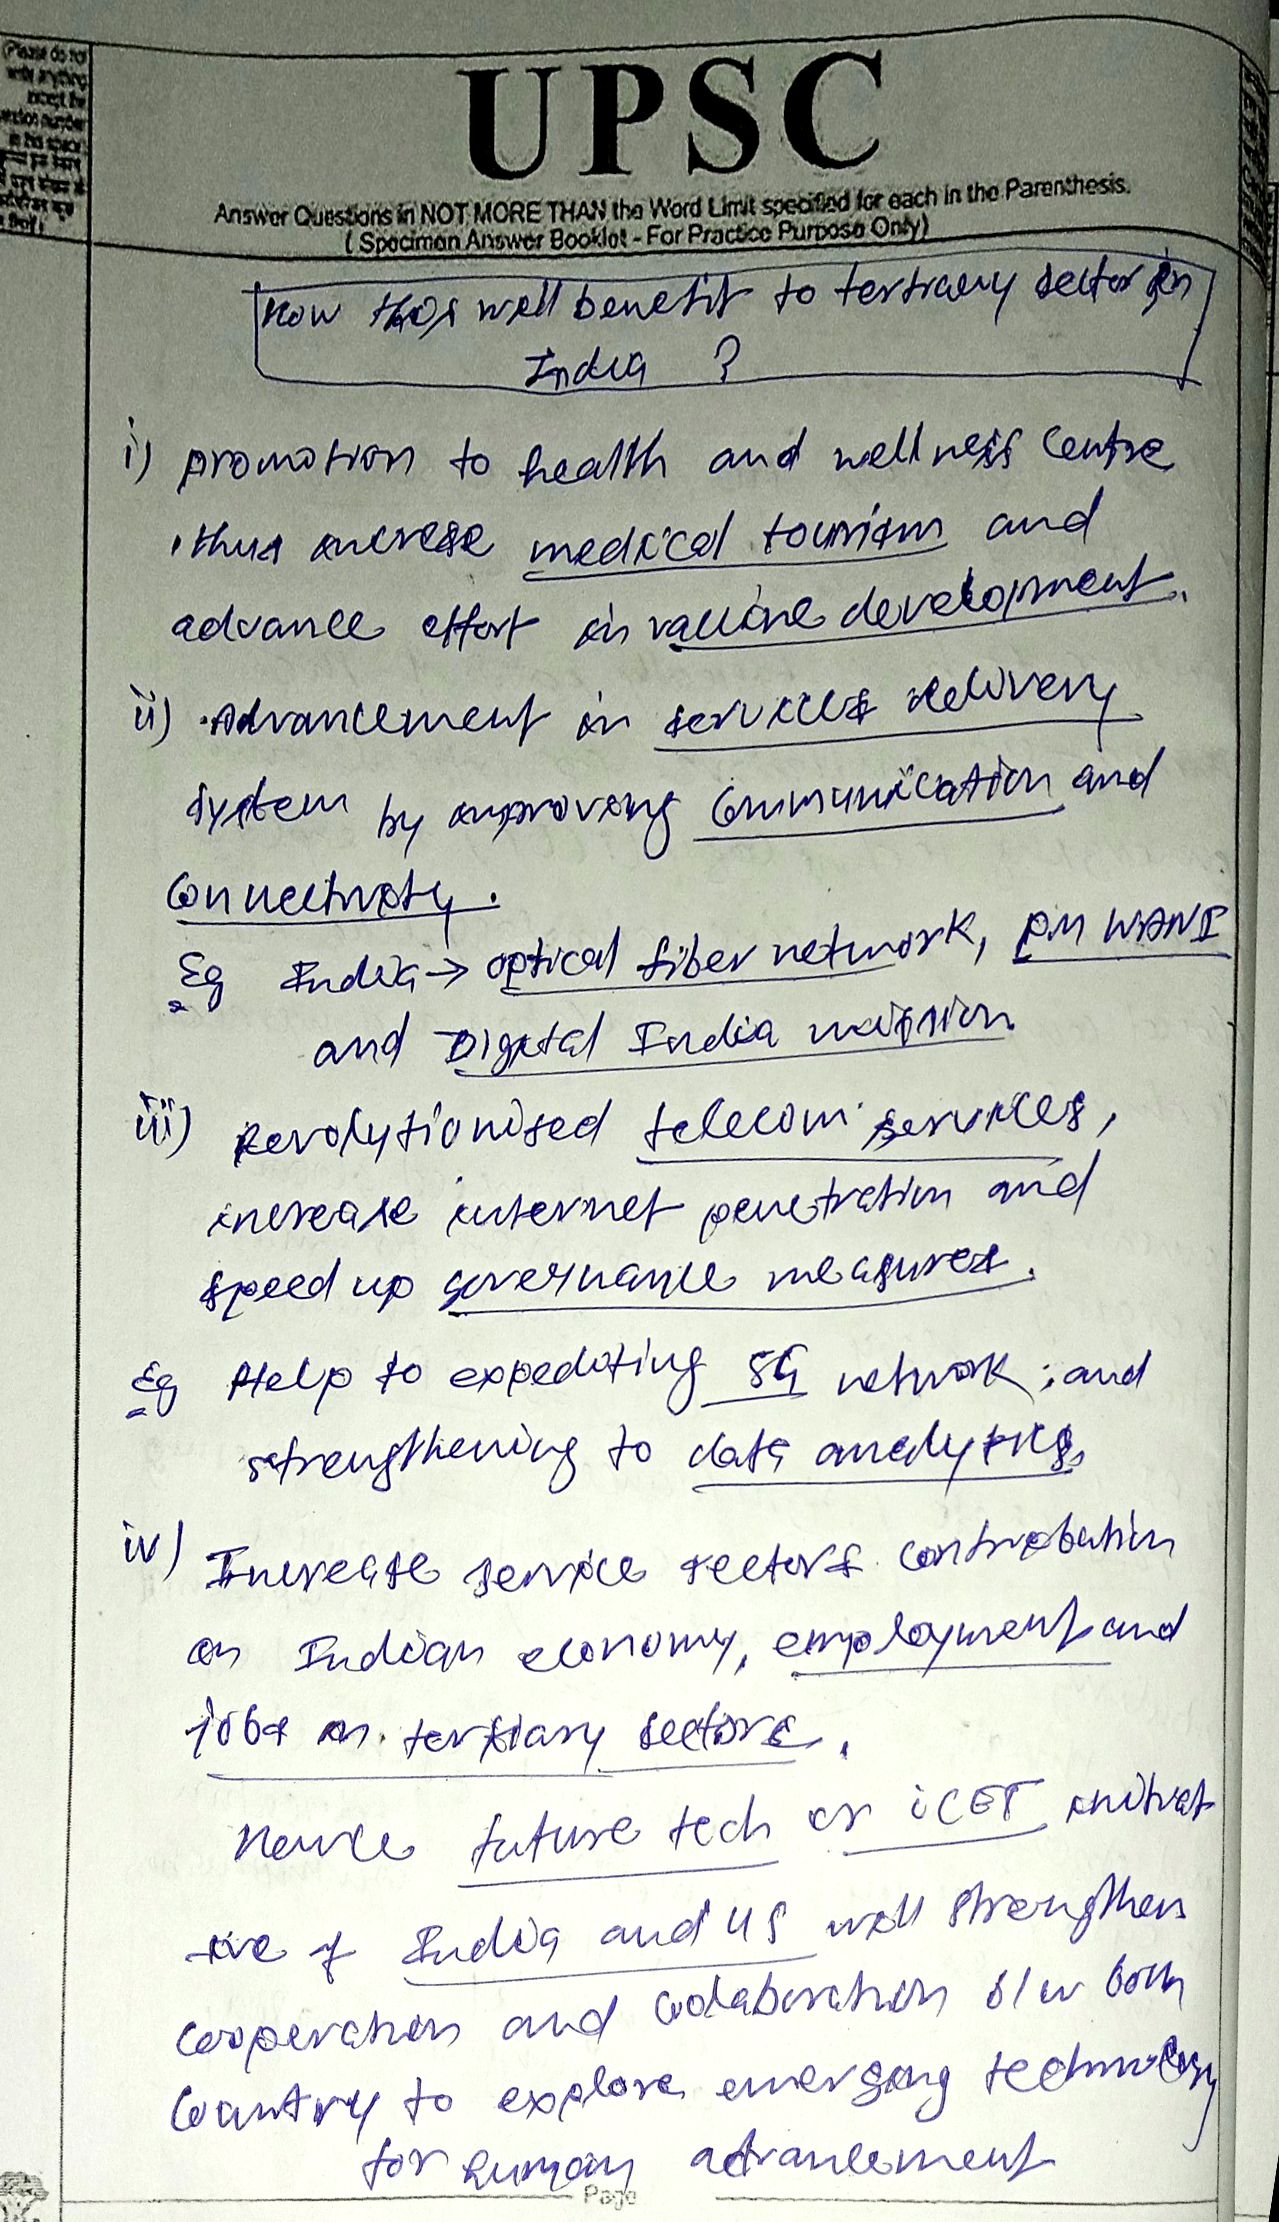 (Please do not
write anything
except the
question number
in this space
UPSC
Answer Questions in NOT MORE THAN the Word Limit specified for each in the Parenthesis.
( Specimen Answer Booklet - For Practice Purpose Only)
How this will benefit to tertiary sector in
India ?
i) promotion to health and wellness centre
thus increase medical tourism and
advance effort in vaccine development.
ii) Advancement in services delivery
system by improving communication and
connectivity.
Eg India → optical fiber network, PM WANI
and Digital India mission
iii) Revolutionised telecom services,
increase internet penetration and
speed up governance measures.
Eg Help to expediting 5G network, and
strengthening to data analytics,
iv) Increase service sectors contribution
in Indian economy, employment and
jobs in tertiary sectors.
Hence future tech or iCET initiat
-ive of India and US will strengthen
cooperation and colaboration b/w both
country to explore emerging technology
for human advancement
Page